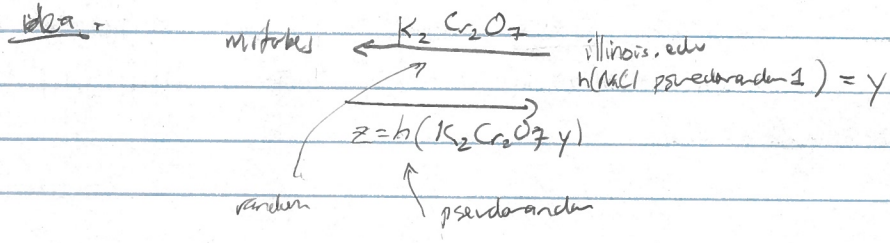 idea.
K₂ Cr₂O₇
illinois.edu
h(NaCl pseudorandom 1) = y
z = h(K₂Cr₂O₇ y)
random
pseudorandom